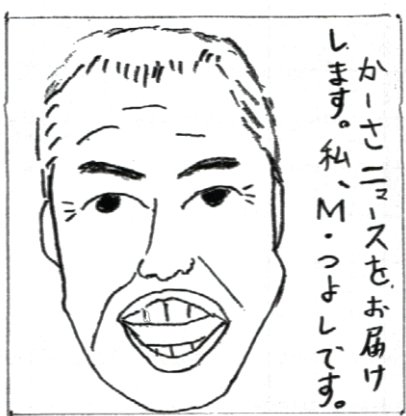 かーさニュースをお届け
します。私、M・つよしです。